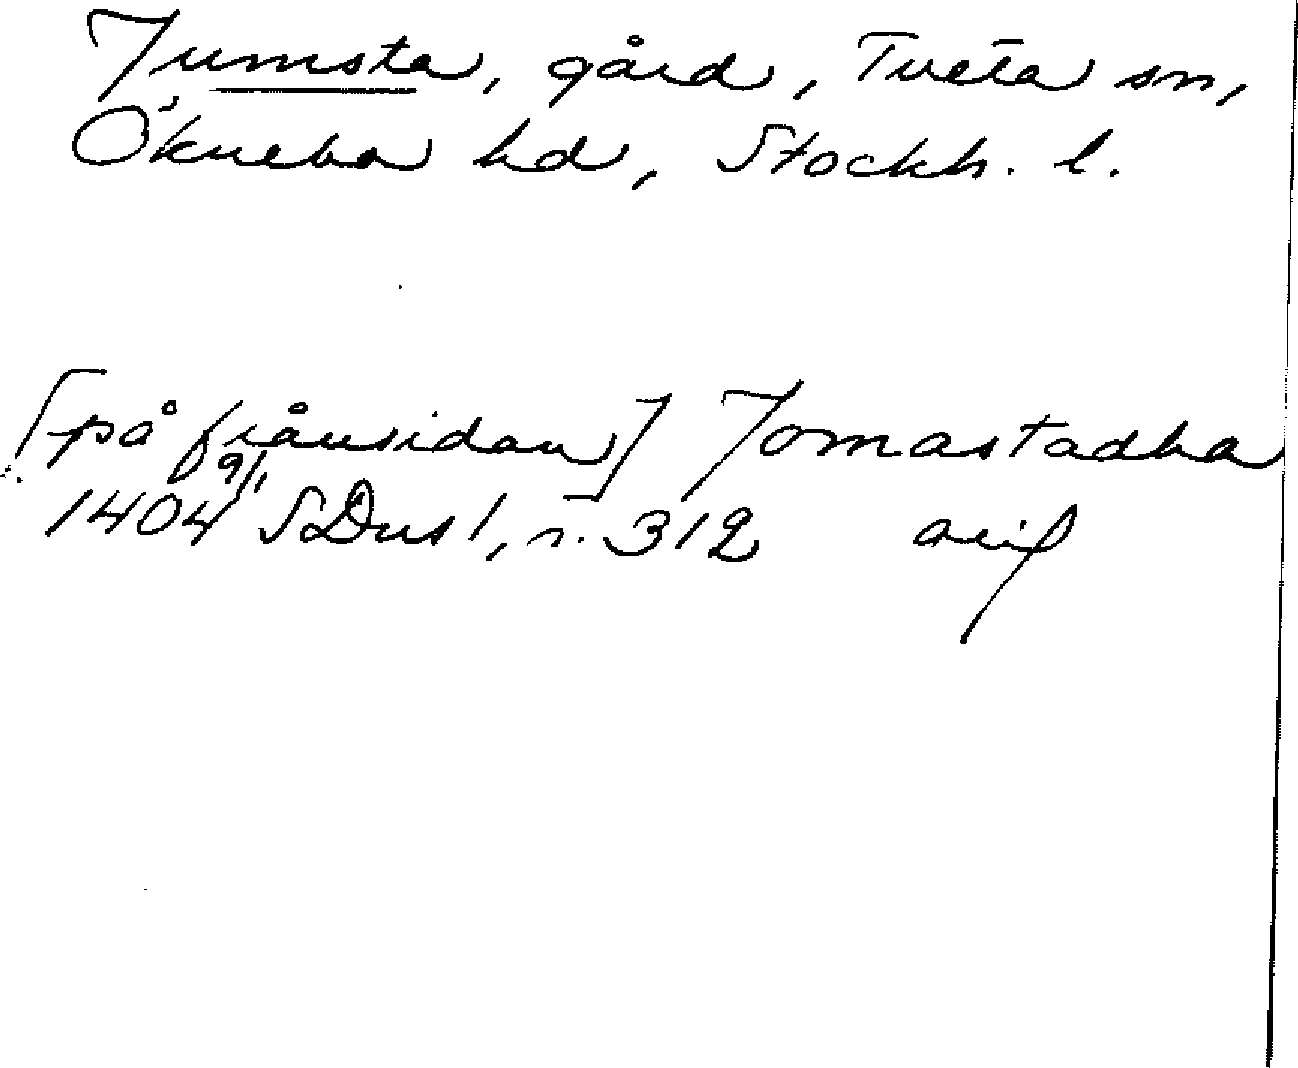 Jumsta, gård, Tveta sn,
Öknebo hd, Stockh. l.
[på frånsidan] Jomastadha
1404 9/1 SDns 1, s. 312 avif